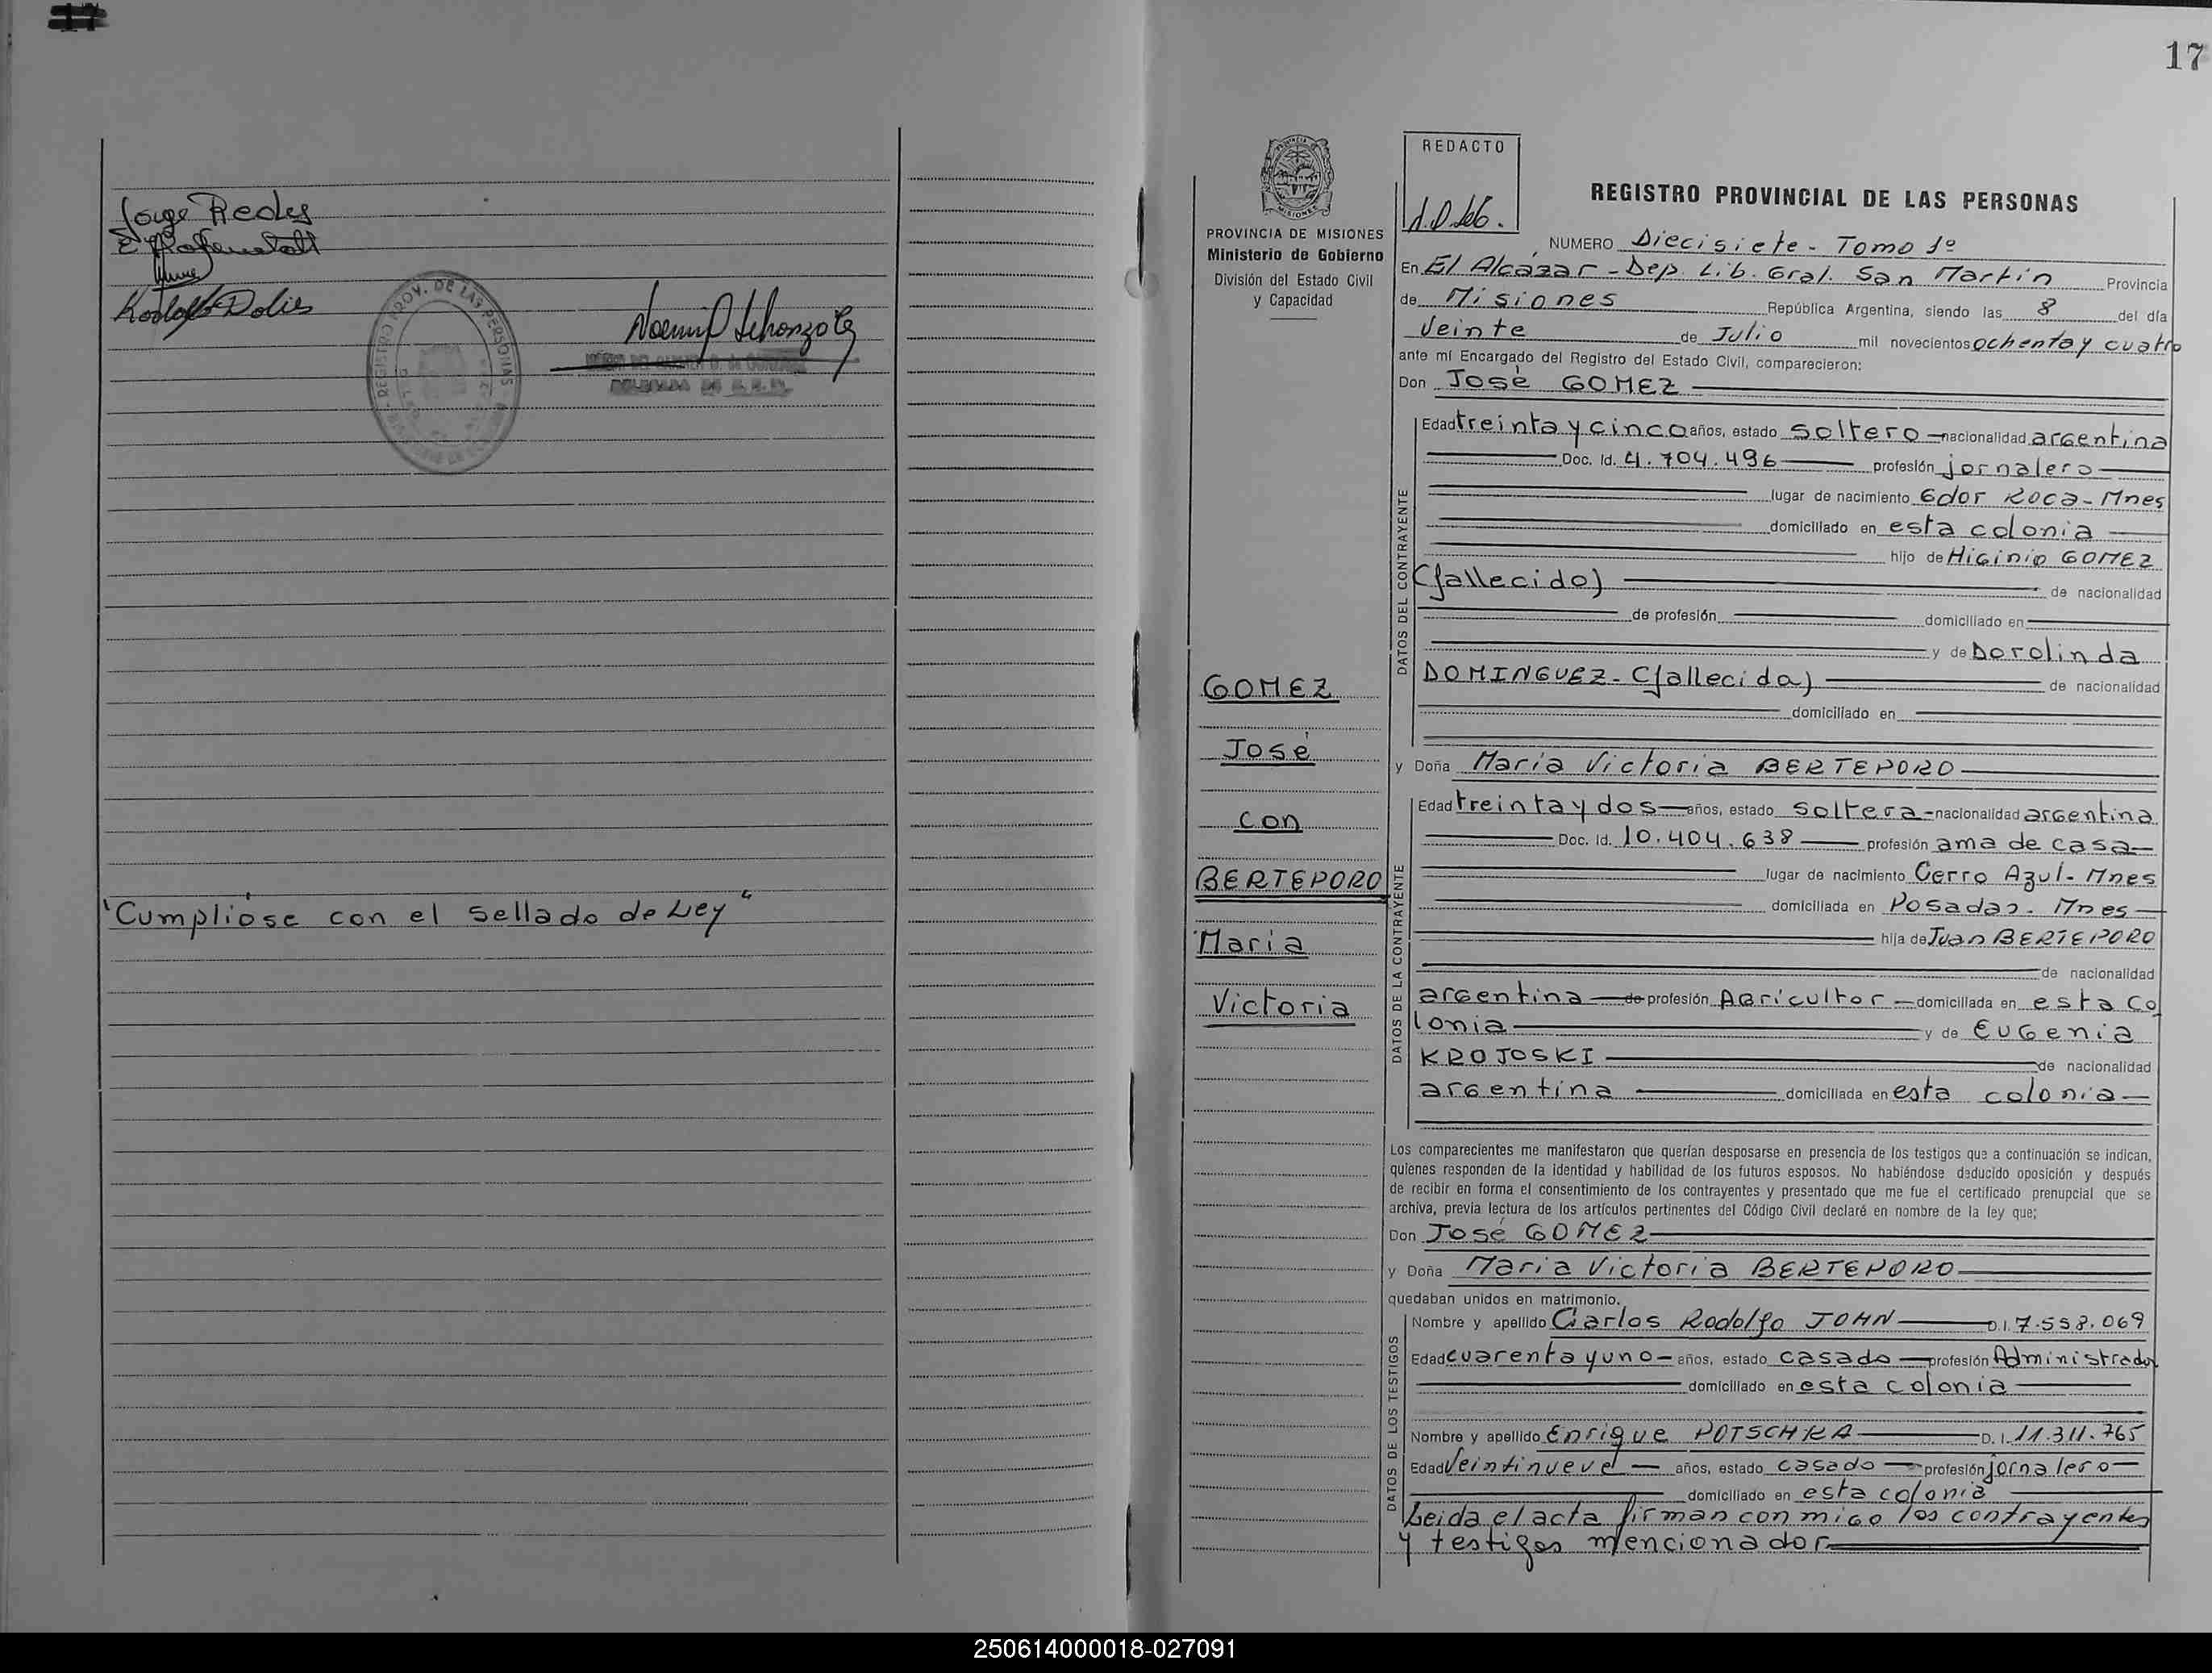 17
Jorge Redes
Rodolfo Dolis
REGISTRO PROV. DE LAS PERSONAS
DELEGADA DE
"Cumplióse con el sellado de Ley"
17
PROVINCIA DE MISIONES
Ministerio de Gobierno
División del Estado Civil
y Capacidad
GOMEZ
José
con
BERTEPORO
Maria
Victoria
REDACTO
REGISTRO PROVINCIAL DE LAS PERSONAS
NUMERO Diecisiete - Tomo 1º
En El Alcázar - Dep. Lib. Gral. San Martín Provincia
de Misiones República Argentina, siendo las 8 del día
Veinte de Julio mil novecientos ochenta y cuatro
ante mí Encargado del Registro del Estado Civil, comparecieron:
Don José GOMEZ
DATOS DEL CONTRAYENTE
Edad treinta y cinco años, estado soltero nacionalidad argentina
Doc. Id. 4.704.496 profesión jornalero
lugar de nacimiento Gdor Roca - Mnes
domiciliado en esta colonia
hijo de Higinio GOMEZ
(fallecido) de nacionalidad
de profesión domiciliado en
y de Dorolinda
DOMINGUEZ - (fallecida) de nacionalidad
domiciliado en
y Doña Maria Victoria BERTEPORO
DATOS DE LA CONTRAYENTE
Edad treinta y dos años, estado soltera - nacionalidad argentina
Doc. Id. 10.404.638 profesión ama de casa
lugar de nacimiento Cerro Azul - Mnes
domiciliada en Posadas - Mnes
hija de Juan BERTEPORO
de nacionalidad
argentina de profesión Agricultor domiciliada en esta co
lonia y de Eugenia
KROJOSKI de nacionalidad
argentina domiciliada en esta colonia
Los comparecientes me manifestaron que querían desposarse en presencia de los testigos que a continuación se indican,
quienes responden de la identidad y habilidad de los futuros esposos. No habiéndose deducido oposición y después
de recibir en forma el consentimiento de los contrayentes y presentado que me fue el certificado prenupcial que se
archiva, previa lectura de los artículos pertinentes del Código Civil declaré en nombre de la ley que;
Don José GOMEZ
y Doña Maria Victoria BERTEPORO
quedaban unidos en matrimonio.
DATOS DE LOS TESTIGOS
Nombre y apellido Carlos Rodolfo JOHN D.I. 7.558.069
Edad cuarenta y uno años, estado casado profesión Administrador
domiciliado en esta colonia
Nombre y apellido Enrique POTSCHKA D. I. 11.311.765
Edad Veintinueve años, estado casado profesión jornalero
domiciliado en esta colonia
Leida el acta firman con migo los contrayentes
y testigos mencionados
250614000018-027091